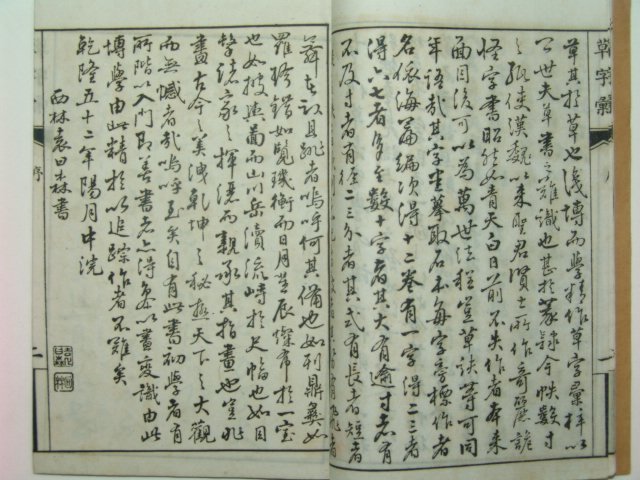 草其於草也淺博而學精作草字彙梓以
公世夫草書之難識也甚於篆隸今帙數寸
之紙使漢魏以來聖君賢士所作奇形詭
怪字書昭然如青天白日前不失作者本來
面目後可以為萬世法程豈草訣等可同
年語哉其字悉摹取石本每字旁標作者
名依海篇編次得十二卷有一字得二三者
得六七者多至數十字者其大有逾寸者有
不及寸者有徑二三分者其式有長者短者
羅珍錯如覽璣衡而日月星辰燦布於一室
也如披輿圖而山川岳瀆流峙於尺幅也如目
擊諸家之揮灑而親承其指畫也豈非
畫古今之美洩乾坤之秘極天下之大觀
而無憾者哉嗚呼至矣自有此書初學者有
所階以入門即善書者亦得參以畫變識由此
博學由此精於以追踪作者不難矣
乾隆五十二年陽月中浣
西林袁日森書
草字彙
序